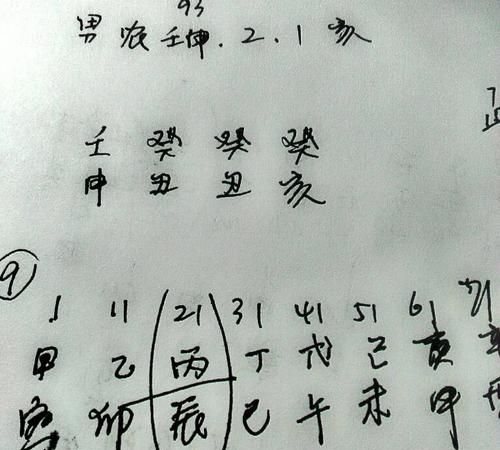 93
男 农 壬申.2.1 亥
正
壬 癸 癸 癸
申 丑 丑 亥
⑨
1 11 21 31 41 51 61 71
甲 乙 丙 丁 戊 己 庚 辛
寅 卯 辰 巳 午 未 申 酉